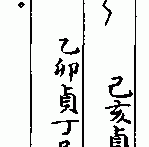 己亥貞
乙卯貞丁